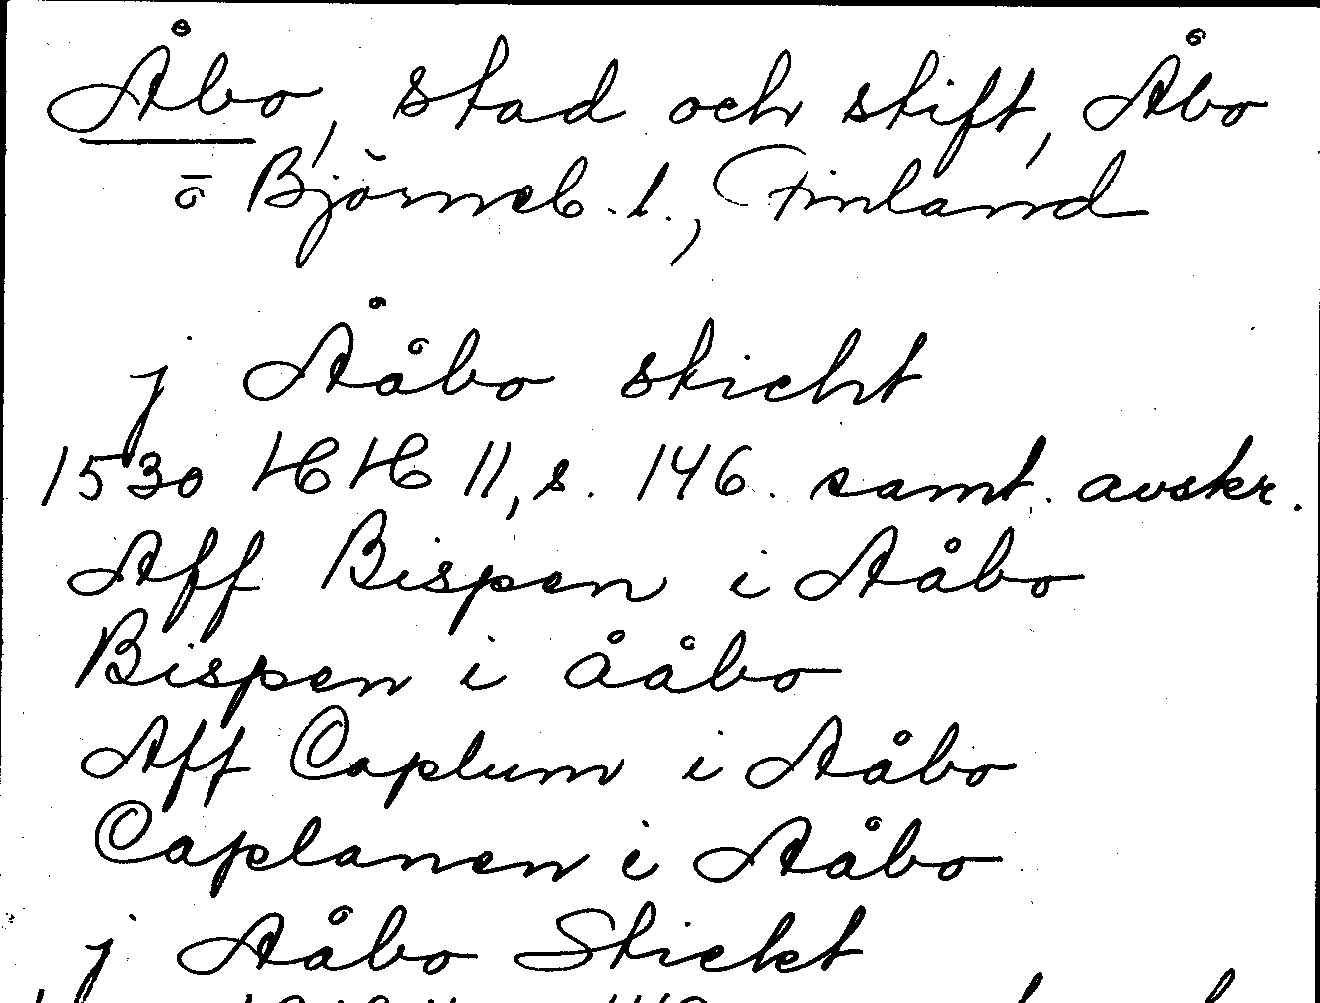 Åbo, stad och stift, Åbo
o Björneb. l., Finland
j Ååbo sticht
1530 HH 11, s. 146. samt. avskr.
Aff Bispen i Aåbo
Bispen i ååbo
Aff Caplum i Aåbo
Caplanen i Aåbo
j Aåbo Stickt